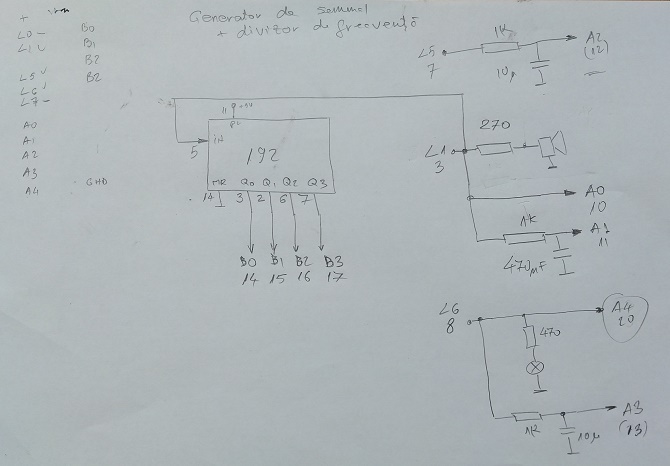 Generator de semnal
+ divizor de frecvență
+
L0 -
B0
L1 ✓
B1
B2
L5 ✓
B2
L6 ✓
L7 -
A0
A1
A2
A3
A4
GND
L5
7
1K
10µ
A2
(12)
11
PL
5
IN
192
MR Q0 Q1 Q2 Q3
14 3 2 6 7
B0 B1 B2 B3
14 15 16 17
L1
3
270
A0
10
1K
A1
11
470µF
L6
8
470
A4
20
1K
10µ
A3
(13)